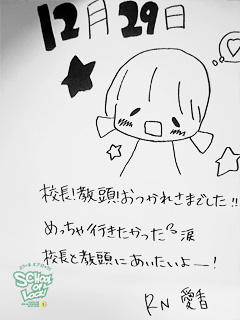 12月29日
校長!教頭!おつかれさまでした!!
めっちゃ行きたかったっろ涙
校長と教頭にあいたいよー!
RN 愛香
SCHOOL OF LOCK!